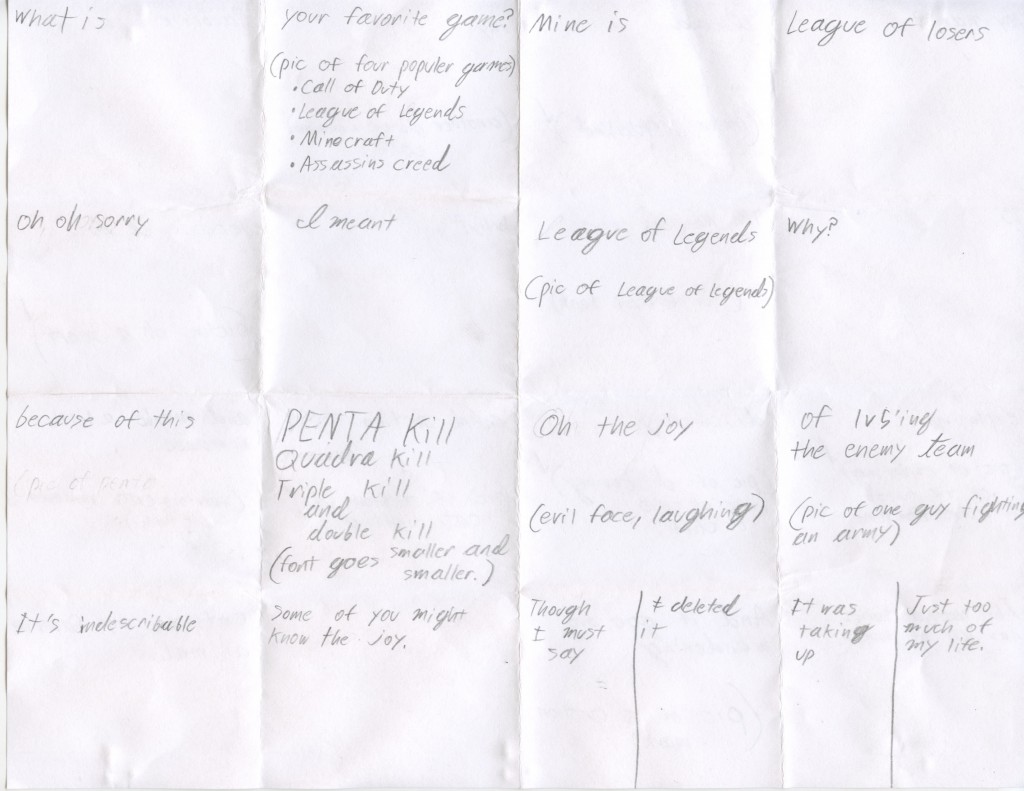 What is
your favorite game?
(pic of four populer games)
• Call of Duty
• League of Legends
• Minecraft
• Assassins creed
Mine is
League of losers
Oh oh sorry
I meant
League of Legends
(pic of League of legends)
Why?
because of this
(pic of penta
PENTA Kill
Quadra Kill
Triple Kill
and
double kill
(font goes smaller and
smaller.)
Oh the joy
(evil face, laughing)
of 1v5'ing
the enemy team
(pic of one guy fighting
an army)
It's indescribable
Some of you might
know the joy.
Though
I must
say
I deleted
it
It was
taking
up
Just too
much of
my life.